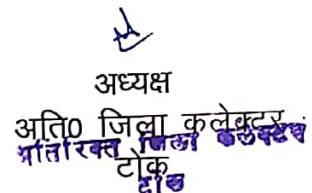 अध्यक्ष
अति० जिला कलेक्टर
अतिरिक्त जिला कलेक्टर
टोंक
टोंक